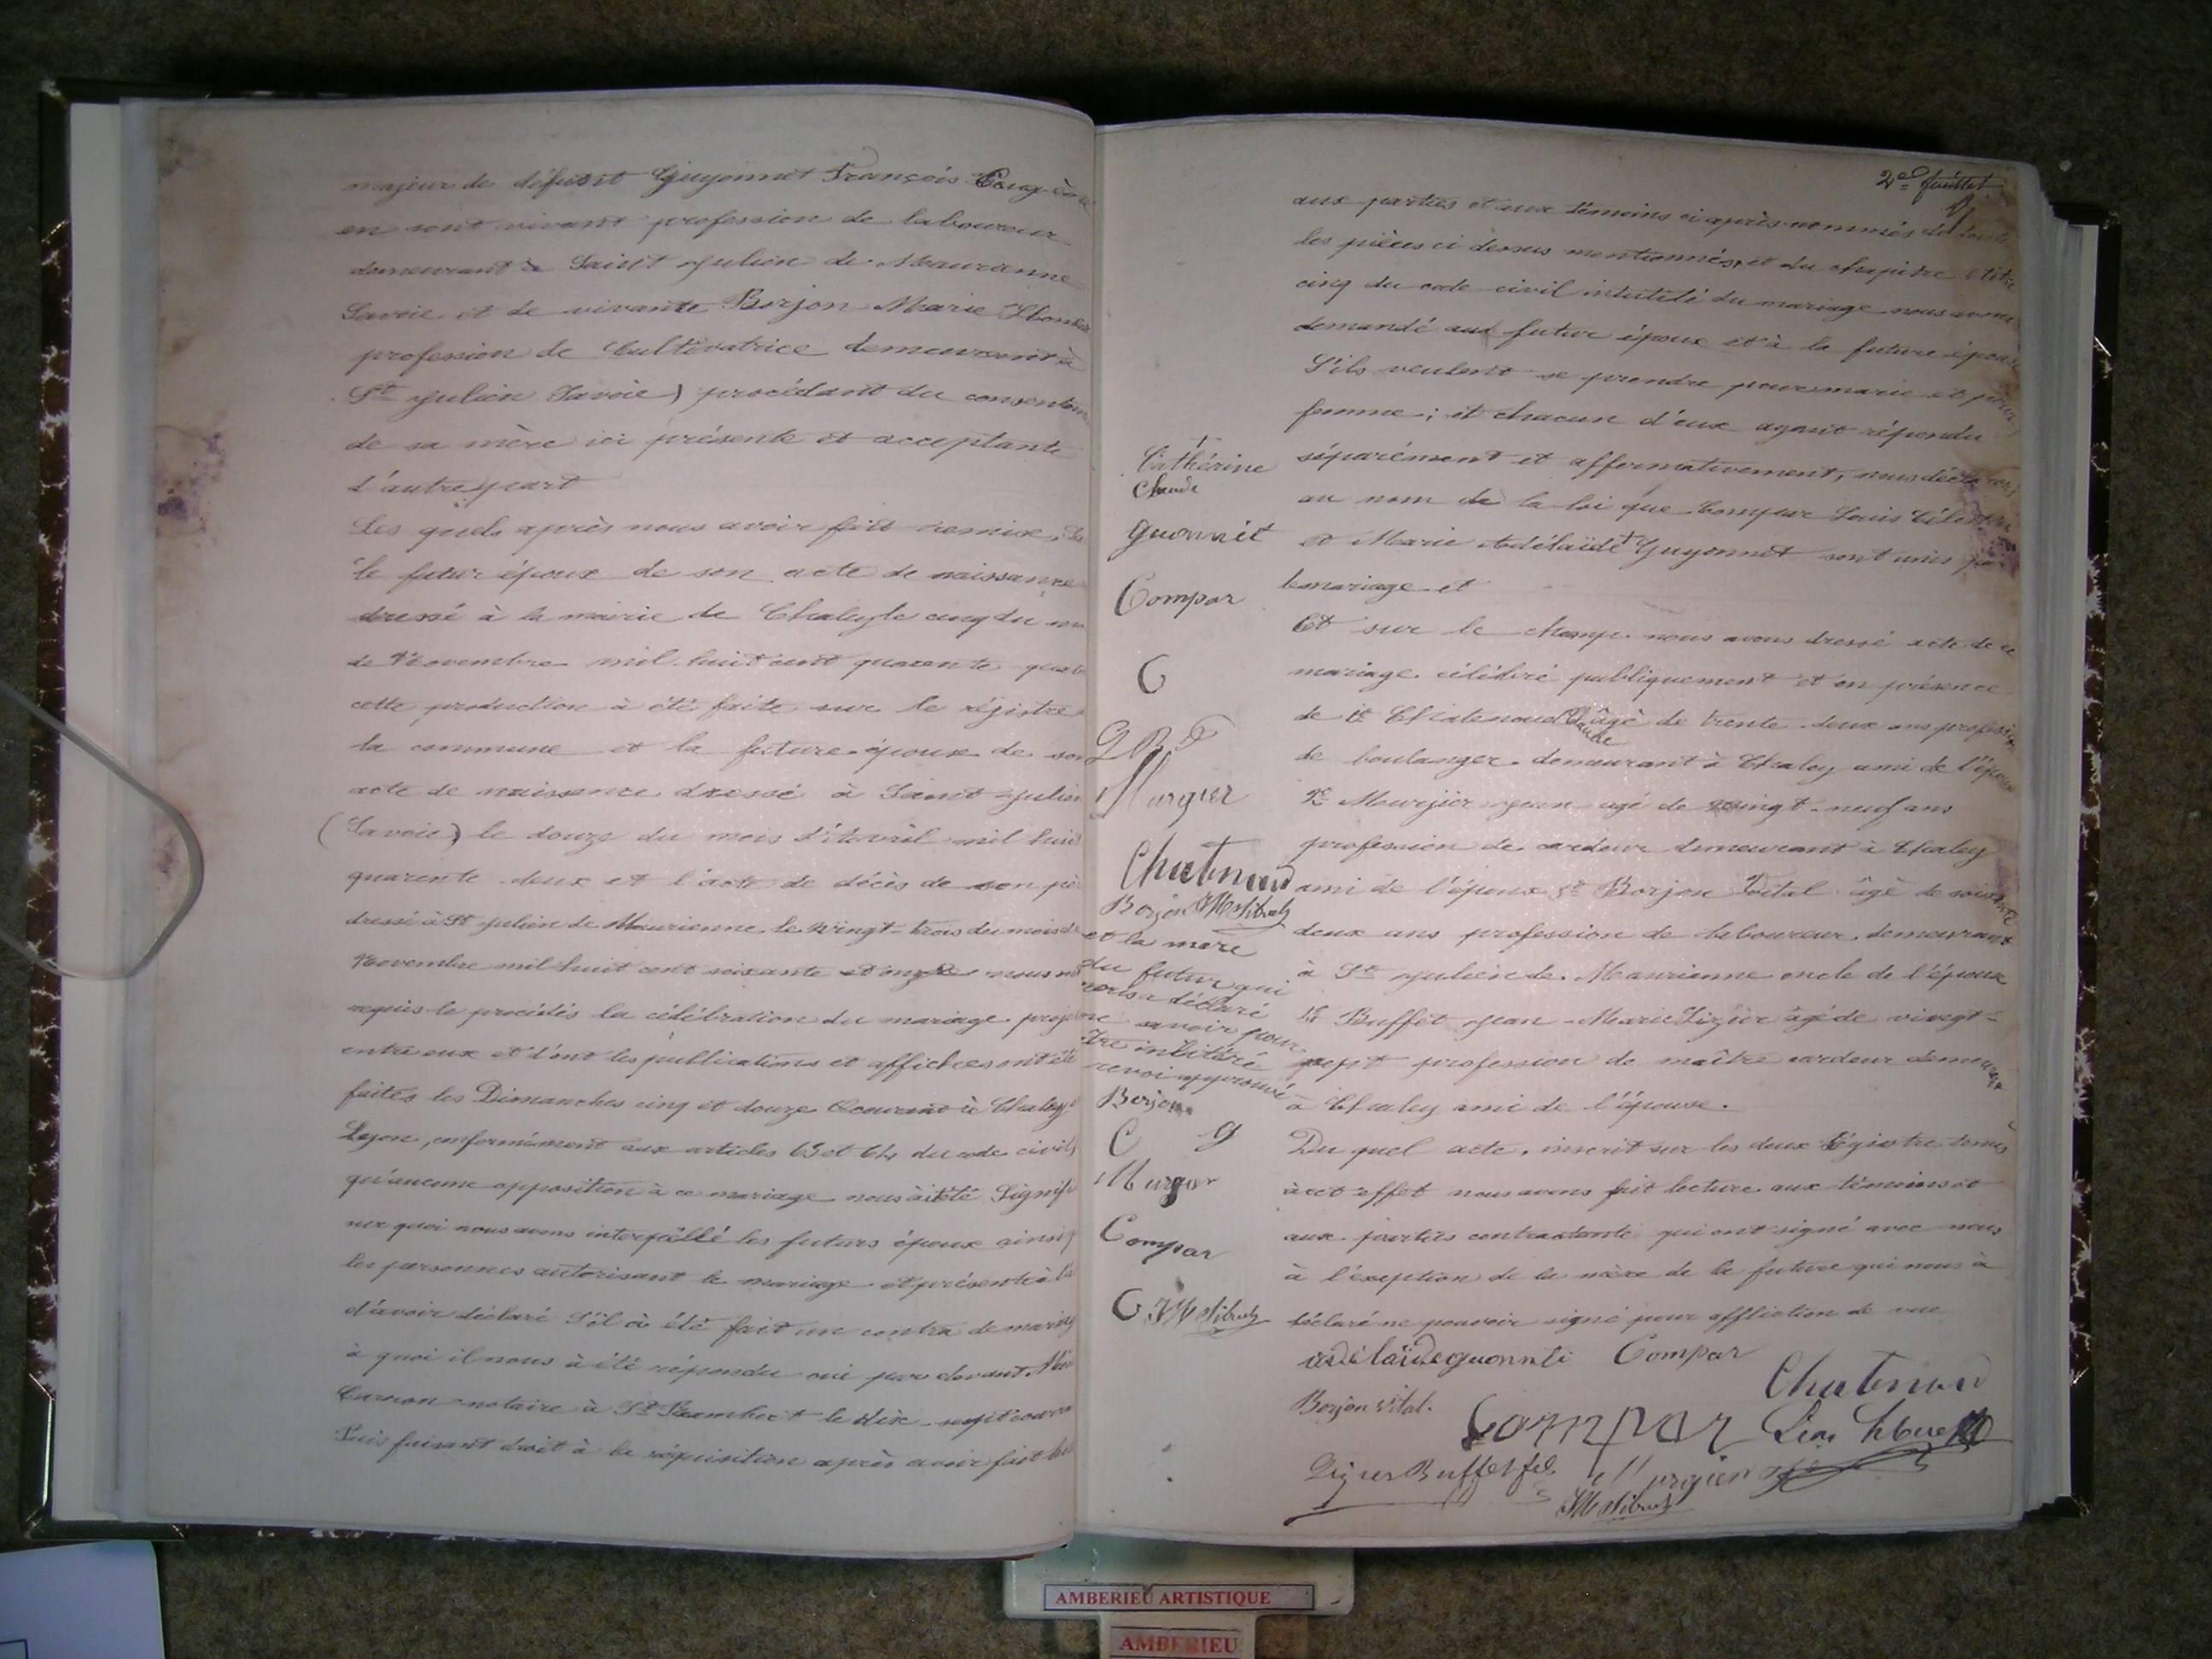 majeur de défunt Guyonnet François
en sont vivant profession de laboureur
demeurant à Saint Julien de Maurienne
Savoie et de vivante Borjon Marie
profession de Cultivatrice demeurant à
St Julien Savoie) procédant du consentem
de sa mère ici présente et acceptante
d'autre part
Les quels après nous avoir fait remise,
le futur époux de son acte de naissance
dressé à la mairie de Chaley le cinq du
de Novembre mil huit cent quarente
cette production à été faite sur le régistre
la commune et la future époux de son
acte de naissance dressé à Saint Julien
(Savoie) le douze du mois d'Avril mil huit
quarente deux et l'acte de décès de son pè
dressé à St Julien de Maurienne le vingt-trois du mois de
Novembre mil huit cent soixante et onze nous
requis le procédés la célébration du mariage proj
entre eux et d'ont les publications et affiches ont été
faites les Dimanches cinq et douze Courant à Chaley
Leyon, conformément aux articles 63 et 64 du code civil
qu'aucune opposition à ce mariage nous à été Signifi
sur quoi nous avons interpéllé les futurs époux ainsi
les personnes autorisant le mariage et présente à
d'avoir déclaré S'il à été fait un contra de mariag
à quoi il nous à été répondu oui par devant
notaire à St Rambert le dix-sept coura
Puis faisant droit à la réquisition après avoir fait
2e Juillet
aux parties et aux témoins ci après nommés de
les pièces ci dessus mentionnés, et du chapitre 6 titre
cinq du code civil intutilé du mariage nous avons
demandé aux futur époux et à la future épouse
S'ils veulent se prendre pour marie et pour
femme; et chacun d'eux ayant répondu
séparément et afformativement, nous déclarons
au nom de la loi que Compar Louis Célestin
et Marie Adélaïde Guyonnet sont unis par
le mariage et
Et sur le champ nous avons dressé acte de ce
mariage célébré publiquement et en présence
de 1e Chatenoud Claude âgé de trente-deux ans profession
de boulanger demeurant à Chaley ami de l'époux
2e Meurjier Jean agé de vingt-neuf ans
profession de cardeur demeurant à Chaley
ami de l'époux 3e Borjon Vital âgé de soixante
deux ans profession de laboureur demeurant
à St Julien de Maurienne oncle de l'époux
Buffet Jean-Marie Ligier âgé de vingt-
sept profession de maître cardeur demeurant
à Chaley ami de l'épouse.
Du quel acte, inscrit sur les deux Régistre tenus
à cet effet nous avons fait lecture aux témoins et
aux parties contractante qui ont signé avec nous
à l'exeption de la mère de la future qui nous à
déclaré ne pouvoir signé pour affliction de vue
Cathérine
Claude
guonnét
Compar
C
Murgier
Chatenoud
Borjon
et la mère
du futur qui
nous a déclaré
ne savoir pour
être inlitéré
renvoi approuvé
Borjon
C g
Murger
Compar
C
adelaïde guonnti Compar
Chatenoud
Borjon vital.
Compar
Ligier Buffet fils